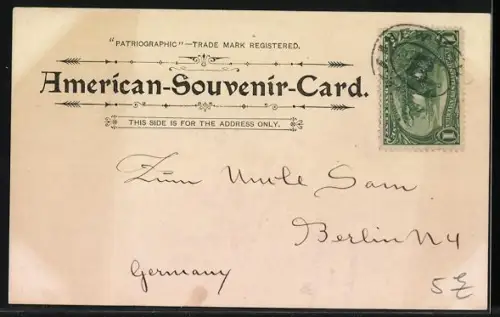 "PATRIOGRAPHIC"—TRADE MARK REGISTERED.
American-Souvenir-Card.
THIS SIDE IS FOR THE ADDRESS ONLY.
1 1
Zum Uncle Sam
Berlin NY
Germany
5